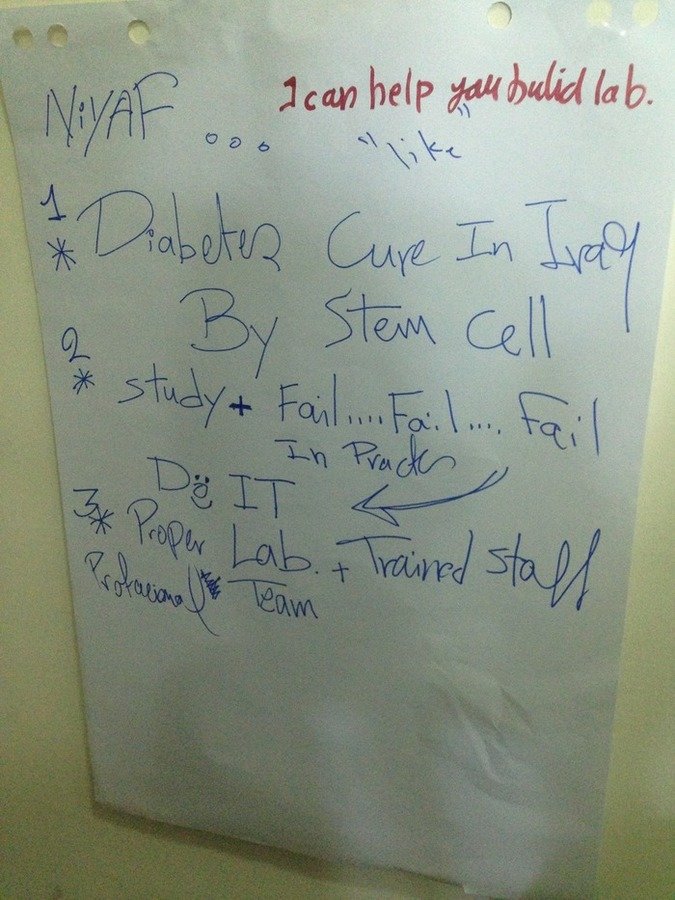 NiYAF ...
I can help you bulid lab.
"like"
1
* Diabetes Cure In Iraq
By Stem Cell
2
* study + Fail....Fail.... Fail
In Practes
Do IT
3* Proper Lab. + Trained Staff
Profacional Team